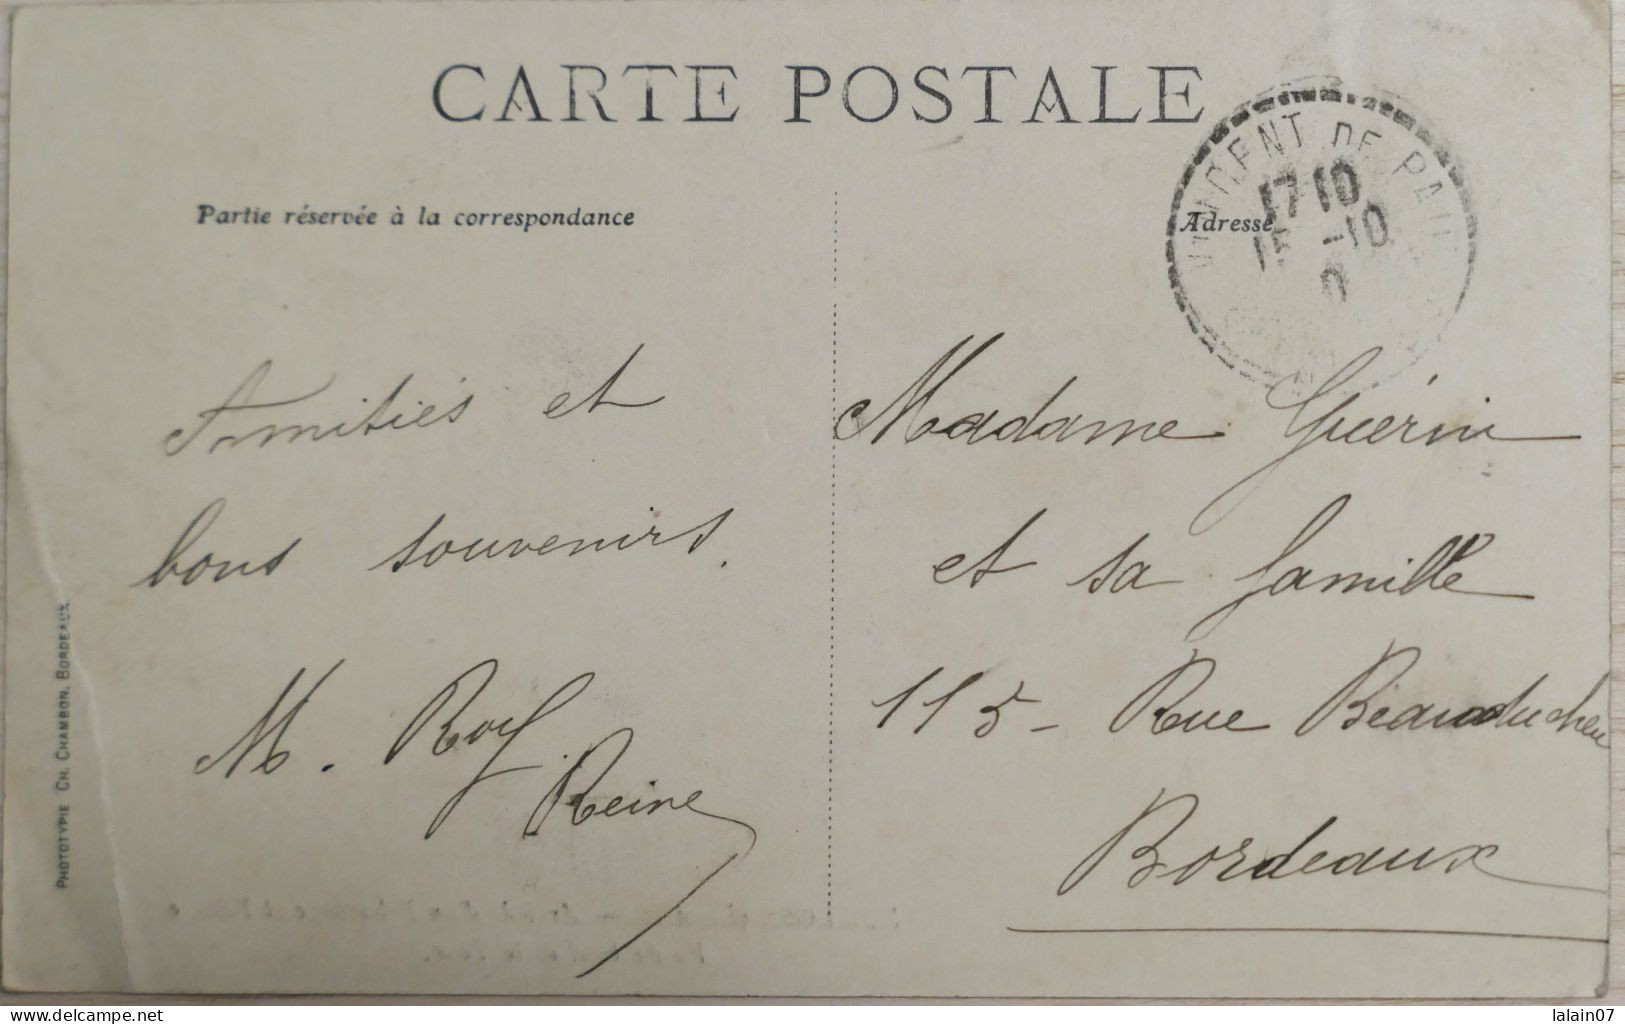 CARTE POSTALE
VINCENT DE PAUL
17 10
15 -10
0
Partie réservée à la correspondance
Adresse
Amitiés et
bons souvenirs.
M. Roy
Reine
Madame Guérin
et sa famille
115 - Rue Beauducheu
Bordeaux
PHOTOTYPIE CH. CHAMBON. BORDEAUX.
www.delcampe.net
lalain07